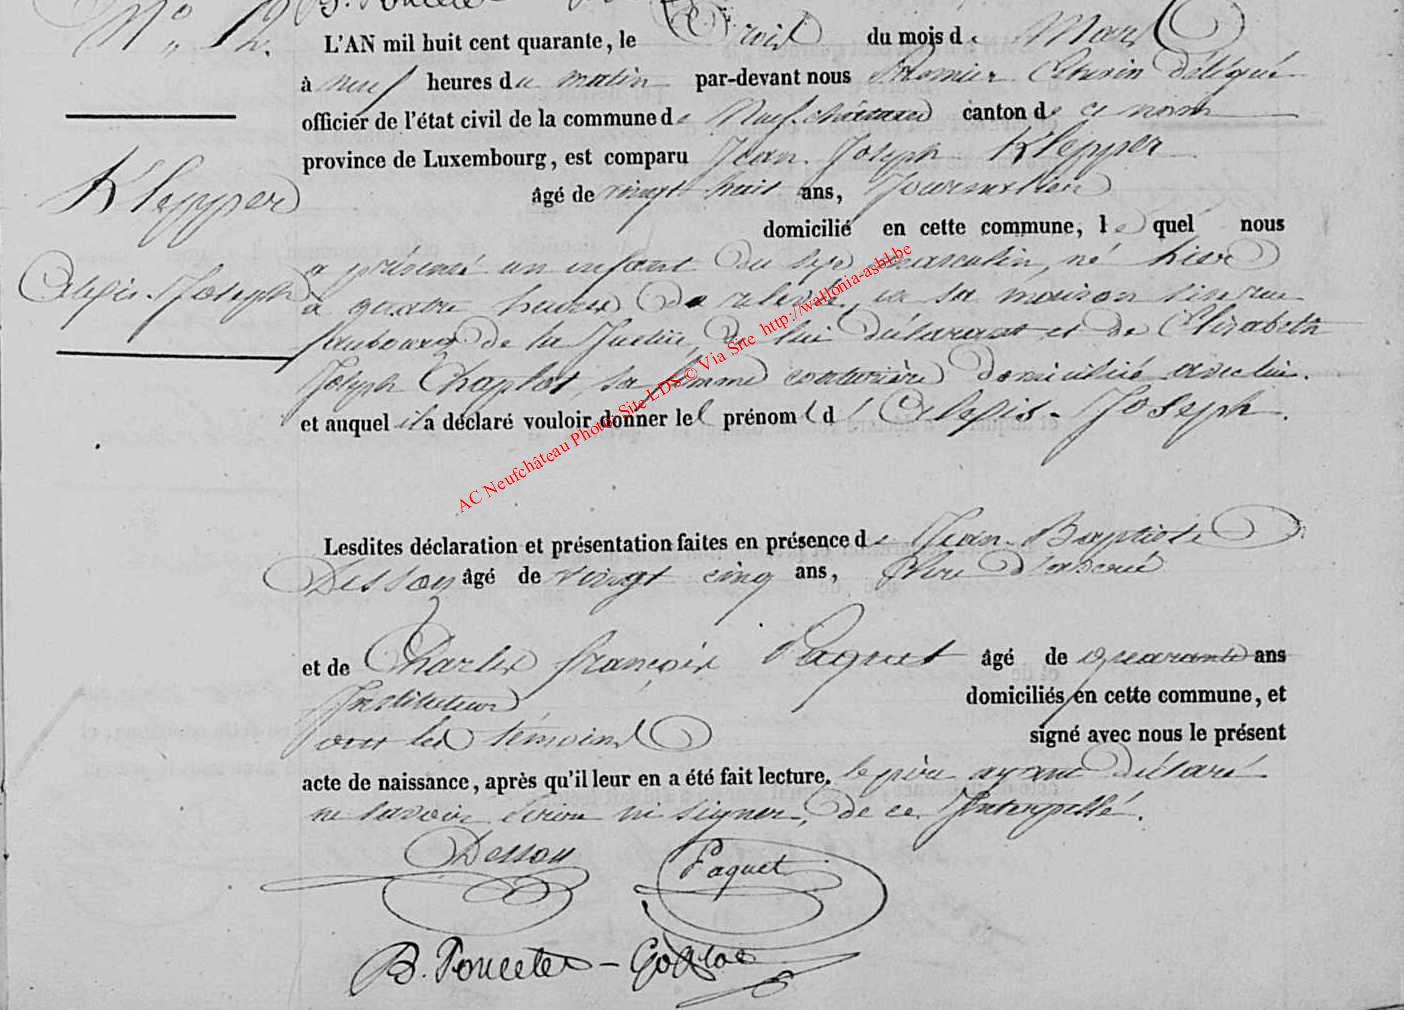 B. Poncelet
N° 12. L'AN mil huit cent quarante, le Trois du mois de Mars
à neuf heures du matin par-devant nous Premier Echevin délégué
officier de l'état civil de la commune de Neufchateau canton de ce nom
province de Luxembourg, est comparu Jean-Joseph Klepper
Klepper
âgé de vingt huit ans, Journalier
domicilié en cette commune, le quel nous
a présenté un enfant du sexe masculin, né hier
Alexis-Joseph
à quatre heures de relevée, en sa maison sise rue
faubourg de la Justice, de lui déclarant et de Elizabeth
Joseph Chaplot, sa femme couturière domicilié avec lui.
et auquel il a déclaré vouloir donner le prénom d' Alexis-Joseph.
AC Neufchâteau Photo Site LDS © Via Site http://wallonia-asbl.be
Lesdites déclaration et présentation faites en présence de Jean-Baptiste
Dessoy âgé de vingt cinq ans,
et de Charles françois Paquet âgé de quarante ans
Instituteur domiciliés en cette commune, et
ont les témoins signé avec nous le présent
acte de naissance, après qu'il leur en a été fait lecture. le père ayant déclaré
ne savoir écrire ni signer, de ce Interpellé.
Dessoy Paquet
B. Poncelet –